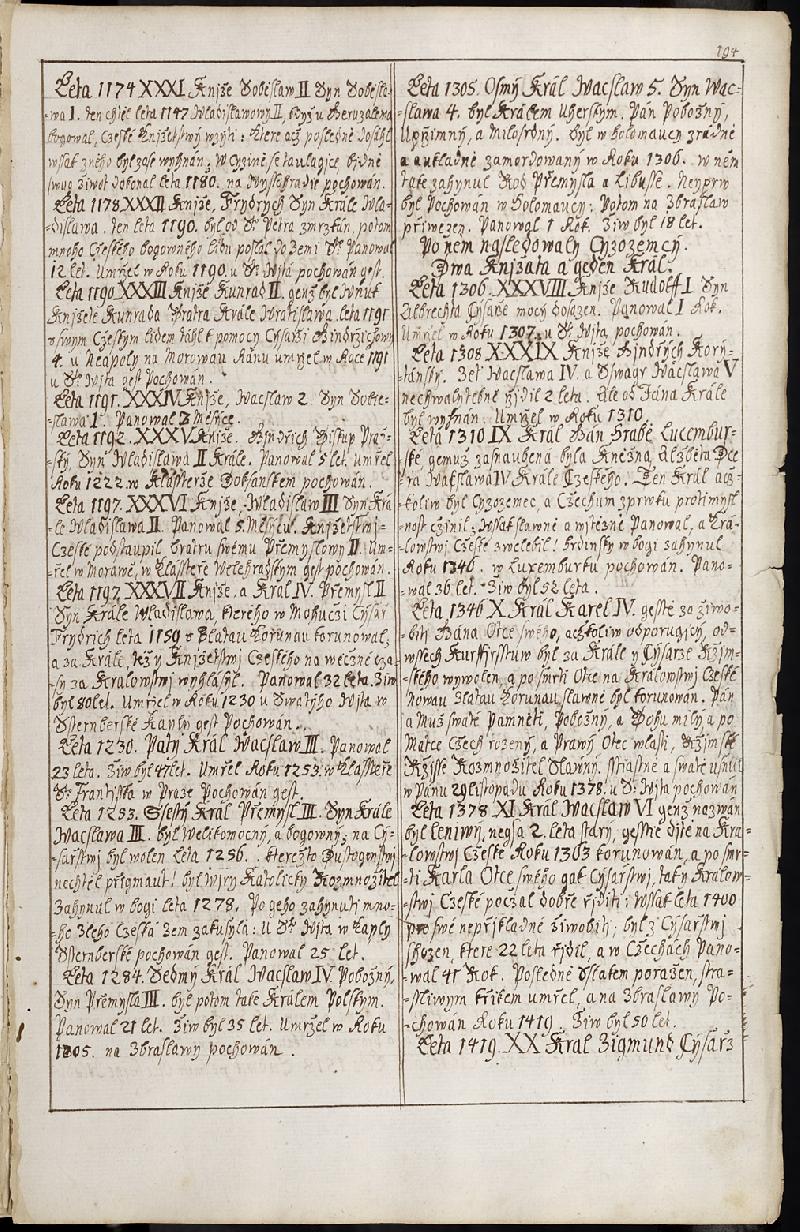 194
Leta 1174 XXXI Knjže Sobeslaw II Syn Sobesla-
wa 1. ten chtěl leta 1147 Wladislawowy II, když u Geruzalema
bogowal, Czeské Knjžetstwj wzyti: Ktere acž posledně dosáhl
wssak z něho byl zase wyhnán; W Cyzině se taulagice bjdně
swug žiwot dokonal leta 1180. na Wyssehradie pochowán.
Leta 1178 XXXII Knjže, Frydrych Syn Krále Wla-
-dislawa. Ten leta 1190. byl od Sº Petra zmrzkán, potom
mnoho Czeského bogowného lidu poslal do Zemi Sº Panowal
12 let. Umřel w Roku 1190. u Sº Wjta pochowán gest.
Leta 1190 XXXIII Knjže Kunrad II. genž byl Wnuk
Knjžete Kunrada Bratra Krále Wratislawa. leta 1191
s swym Czeskym lidem táhl k pomocy Cysařzi Gindržichowy
4. u Neapoly na Morowau Ránu umřzel w Roce 1191
u Sº Wjta gest Pochowán.
Leta 1191. XXXIV Knjže, Wacslaw 2. Syn Sobie-
-slawa 1º Panowal 3 Měsyce.
Leta 1192. XXXV Knjže. Gindrich Biskup Praž-
ský, Syn Wladislawa II Krále. Panowal 5 let. umřel
Roku 1222 w Klassteržе Doksanskem pochowán.
Leta 1197. XXXVI Knjže, Wladislaw III Syn Krá-
le Wladislawa II. Panowal 5 Měsycu. Knjžetstwj-
Czeské podstaupil bratru swému Přemyslowy II um-
řel w Morawě, w Klassteře Welehradskym gest pochowán.
Leta 1197 XXXVII Knjže. a Král IV. Přemysl II
Syn Krále Wladislawa, kterého w Mohuczi Cysař
Frydrich leta 1159 s Zlatau Korunau korunowal,
a za Krále, též y Knjžetstwj Czeského na wěcžné cža-
sy za Kralowstwj wyhlásyl. Panowal 32 leta. Žiw
byl 80 let. Umřel w Roku 1230 u Swatého Wjta w
Ssternberské Kaply gest Pochowán.
Leta 1230. Paty Král Wacslaw III. Panowal
23 leta. Žiw byl 47 let. Umřel Roku 1253. w Klassteře
Sº Frantisska w Praze Pochowán gest.
Leta 1253. Ssestý Král Přemysl III. Syn Krále
Wacslawa III. byl Welikomocný, a bogowný; na Cy-
-sařstwj byl wolen Leta 1256. kterežto Dustogenstwj
nechtěl přigmaut! byl Wjry Katolický Rozmnožitel
Zahynul w bogi leta 1278. Po geho zahynuti mno-
ho Zlého Czeská Zem zakusyla. U Sº Wjta w Kaply
Ssternberské pochowán gest. Panowal 25 let.
Leta 1284. Sedmý Král Wacslaw IV Pobožný,
Syn Přemysla III. byl potom také Králem Polským.
Panowal 21 let. Žiw byl 35 let. Umržel w Roku
1305. na Zbraslawy pochowán.
Leta 1305. Osmý Král Wacslaw 5. Syn Wac-
slawa 4. byl Králem Uherským. Pán Pobožný,
Upřimný, a Milosrdný. Byl w Holomaucy zrádně
a aukladně zamordowaný w Roku 1306. w něm
také zahynul Rod Přemysla a Libusse. Neyprw
byl Pochowán w Holomaucy: Potom na Zbraslaw
přiwezen. Panowal 1 Rok. Žiw byl 18 let.
Po nem nasledowaly Cyzozemcy.
Dwa Knjžata a geden Král.
Leta 1306. XXXVIII Knjže Rudolff I Syn
Albrechta Cysaře mocý dosazen. Panowal 1 Rok.
Umřel w Roku 1307. u Sº Wjta pochowán.
Leta 1308 XXXIX Knjže Gindřých Kory-
-tánský. Zet Wacslawa IV. a Sswagr Wacslawa V
nechwalitebně řjdil 2 leta. Ale od Jána Krále
byl wyhnán. Umržel w Roku 1310.
Leta 1310 IX Král Ján Hrabě Lucembur-
ské gemuž zasnaubena byla Kněžna Alžběta Dce-
ra Wacslawa IV Krále Czeského. Ten Král acž-
-koliw byl Cyzozemec, a Czechum zprwku protimysl-
-nost czinil: Wssak slawně a wjtězně Panowal, a Krá-
lowstwj Czeské zwelebil! hrdinsky w bogi zahynul
Roku 1346. w Luxemburku pochowán. Pano-
wal 36 let. Žiw byl 52 leta.
Leta 1346 X Král Karel IV. gesstě za žiwo-
bitj Jána Otce swého, acžkoliw odporugjcý, od-
wssech Kurffjrsstuw byl za Krále y Cýsarze Řžjm-
-ského wywolen, a po smrti Otce na Kralowstwj Czeské
Nowau Zlatau Korunau slawně byl korunowán. Pán
a Muž swaté Paměti, Pobožny, a Bohu milý a po
Mátce Czech rozený, a Prawý Otec wlasti, Řžjmské
Řžjsse Rozmnožitel Slawný. Sstiastně a swatě usnul
w Pánu 29 listopadu Roku 1378. u Sº Wjta pochowán
Leta 1378 XI Král Wacslaw VI genž nazwán
byl Leniwý, negsa 2. leta starý, gesstě djtě na Kra-
lowstwj Czeské Roku 1363 korunowán, a po smr-
-ti Karla Otce swého gak Cysařstwj, tak y Králow-
stwj Czeské pocžal dobře řjditi: Wssak leta 1400
pro swé nepřjkladné žiwobitj, byl z Cysařstwj
shozen, ktere 22 leta řjdil, a w Czechách Pano-
-wal 41 Rok. Posledně Sslakem poražen, stra-
-ssliwym křikem umřel, a na Zbraslawy Po-
-chowán Roku 1419. Žiw byl 50 let.
Leta 1419. XX Kral Zigmund Cysařz